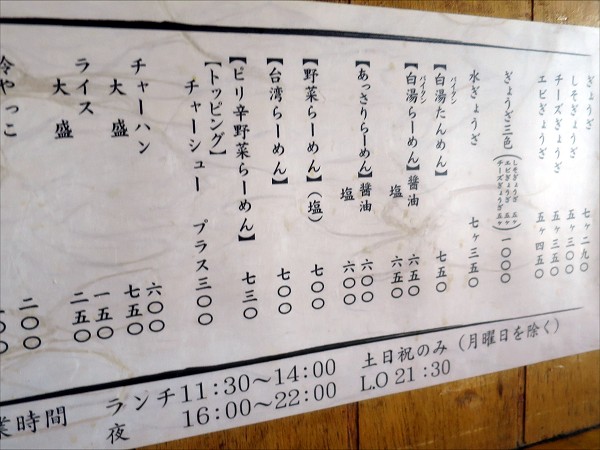 ぎょうざ 七ヶ二九〇
しそぎょうざ 五ヶ三〇〇
チーズぎょうざ 五ヶ三五〇
エビぎょうざ 五ヶ四五〇
ぎょうざ三色(しそぎょうざ 五ヶ エビぎょうざ 五ヶ チーズぎょうざ五ヶ)一〇〇〇
水ぎょうざ 七ヶ三五〇
【白湯たんめん】 七五〇
パイタン
【白湯らーめん】醤油 六五〇
パイタン
塩 六五〇
【あっさりらーめん】醤油 六〇〇
塩 六〇〇
【野菜らーめん】(塩) 七〇〇
【台湾らーめん】 七〇〇
【ピリ辛野菜らーめん】 七三〇
【トッピング】
チャーシュー プラス三〇〇
チャーハン 六〇〇
大盛 七五〇
ライス 一五〇
大盛 二五〇
冷やっこ 二〇〇
業時間 ランチ11:30〜14:00 土日祝のみ(月曜日を除く)
夜 16:00〜22:00 L.O 21:30